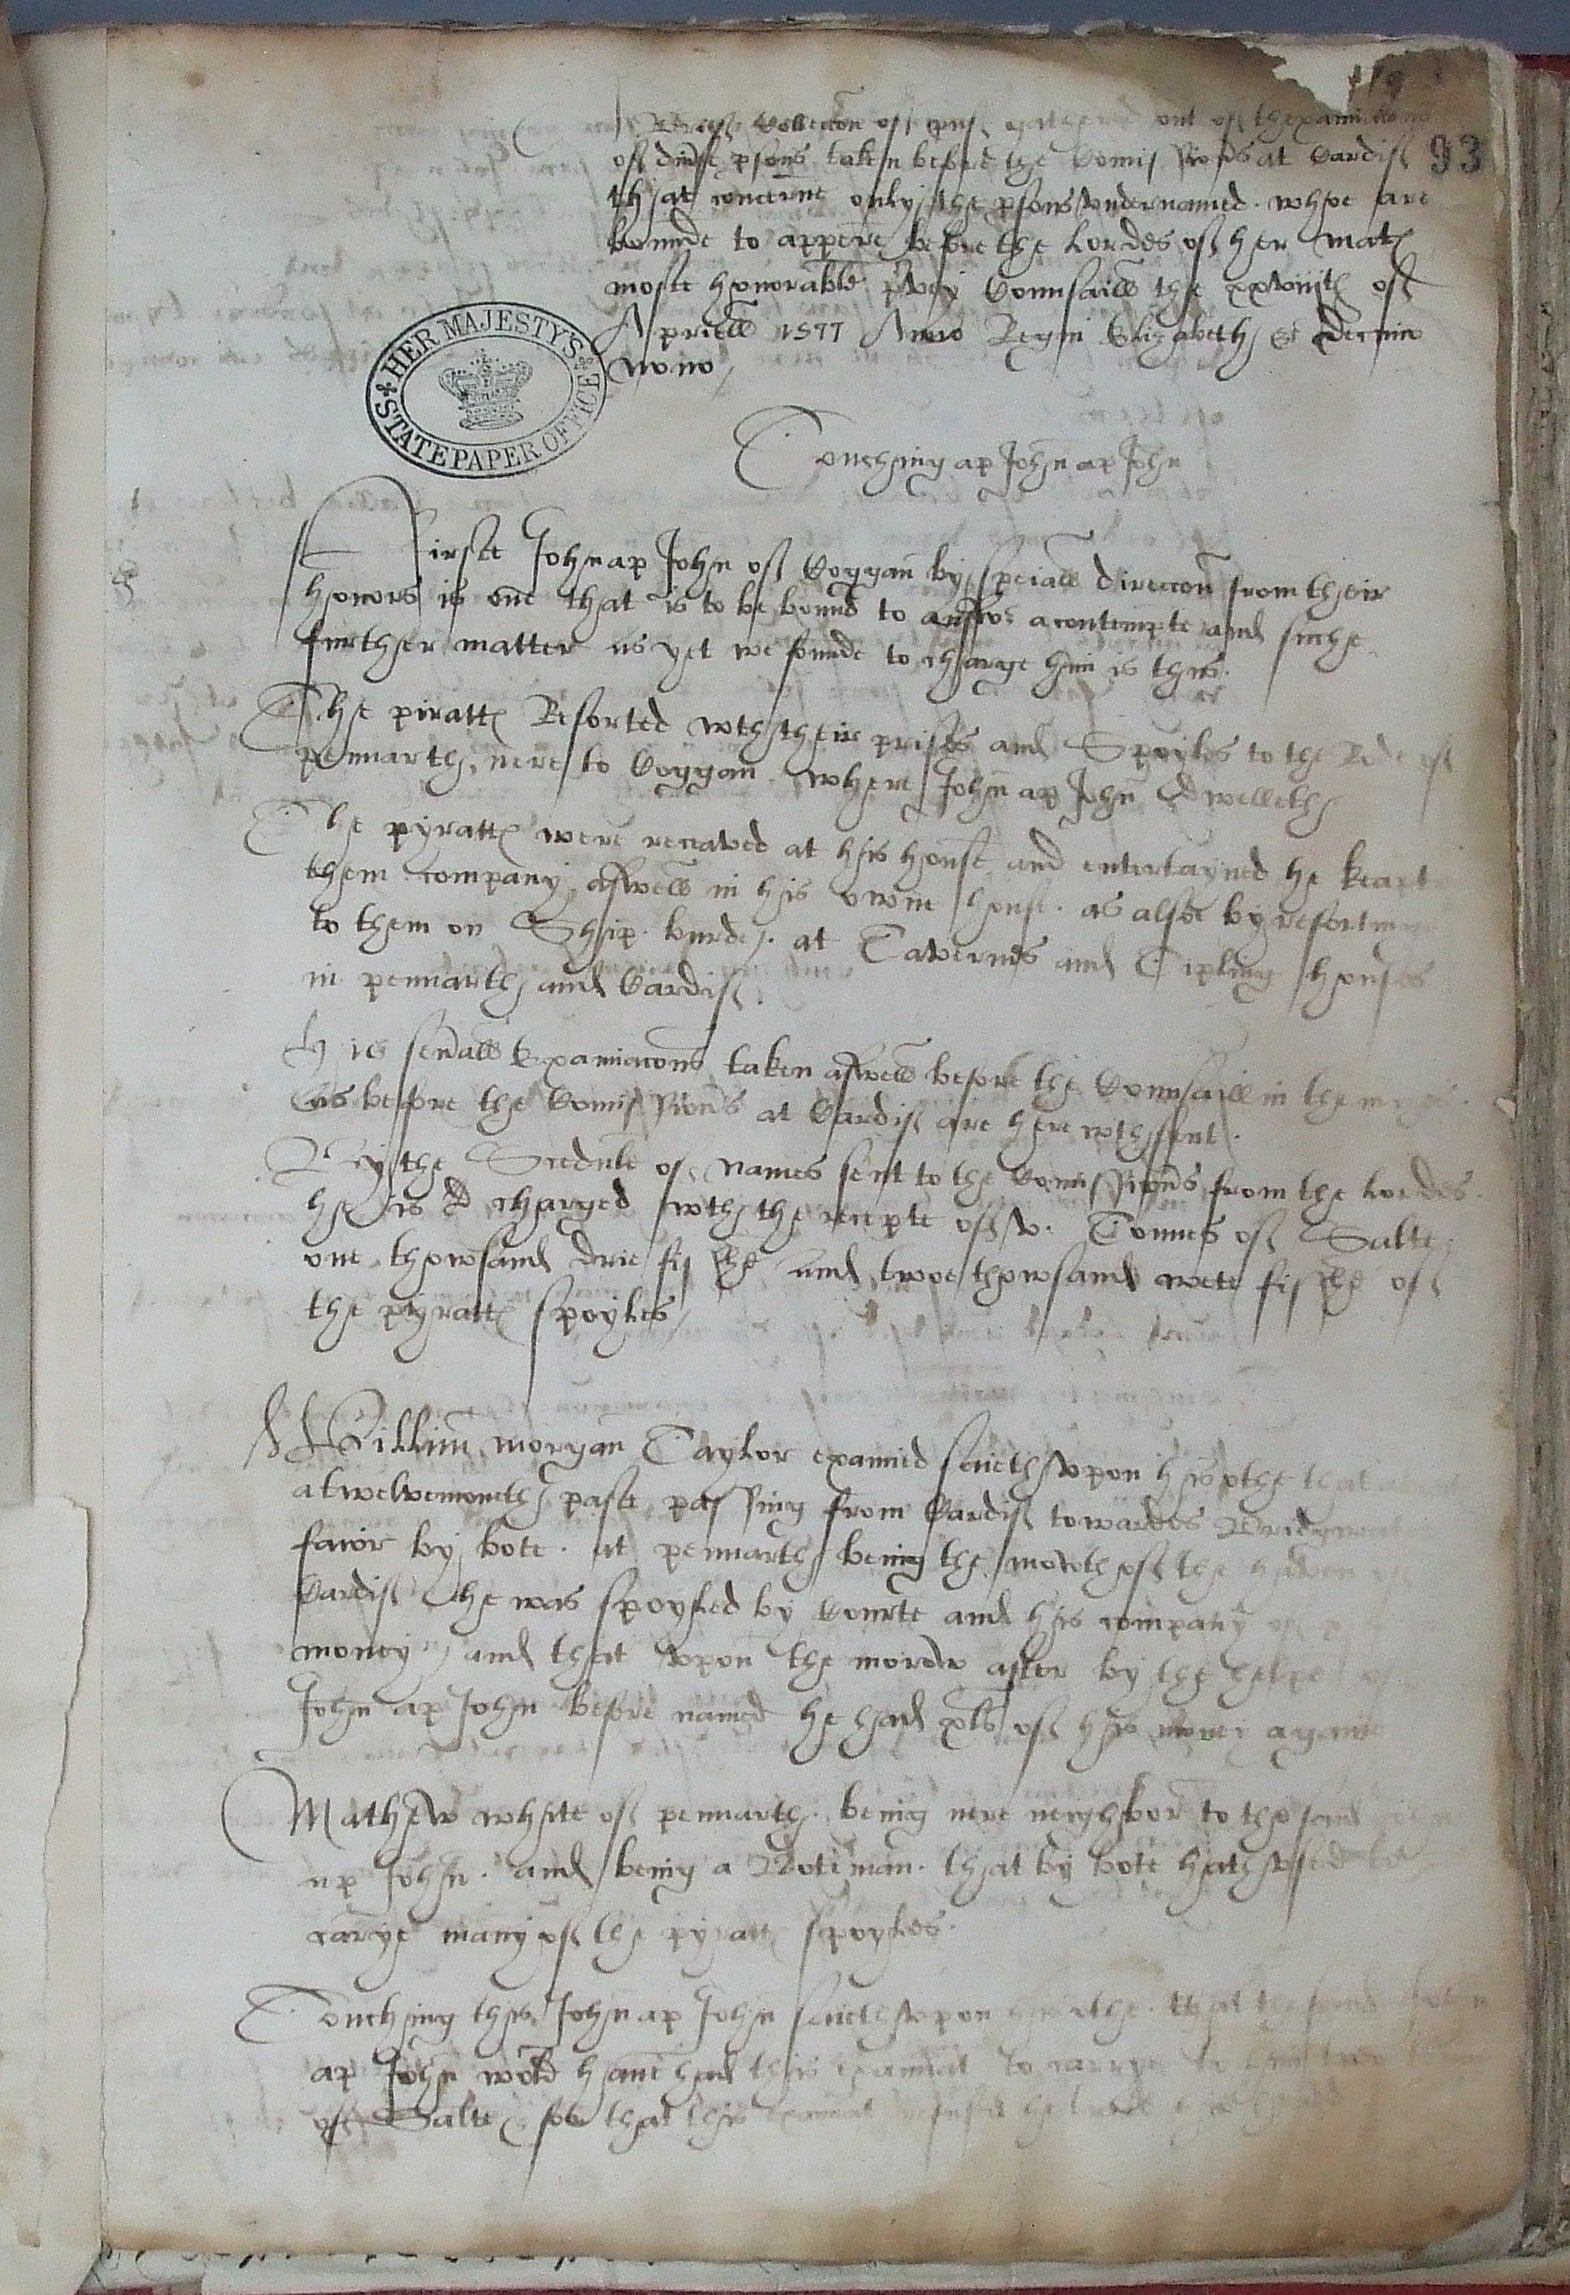 93
A Breife Colleccon of suche gathered out of thexaminacons
of div'se p'sons taken before the Comissioners at Cardif
that concerne only the p'sons undernamed. whoe are
bounde to appere before the Lordes of her Mats
moste honorable pryvy Counsaill the xxviijth of
Aprill 1577 Anno Regni Elizabeth &c Decimo
nono
HER MAJESTY'S STATE PAPER OFFICE
Touching ap John ap John
Firste John ap John of Coggan by speciall direccon from their
honors is one that is to be bound to answer a contempte and suche
further matter as yet we founde to charge him is this.
The piratts Resorted wth their prises and Spoyles to the Rode of
pennarth, nere to Coggan where John ap John Dwelleth
The pyratts were receaved at his house and entertayned he keapte
them company aswell in his owne house. as alsoe by resorting
to them on Ship burde. at Taverns and Tipling houses
in pennarth and Cardif.
His severall Examinacons taken aswell before the Counsaill in the
as before the Comissioners at Cardif are herewth sent.
By the Scedule of names sent to the Comissioners from the Lordes
he is charged wth the receipte of v. Tonnes of Salte
one thowsand drie fishe and twoe thowsand wete fishe of
the pyratts spoyles
Willim Morgan Taylor examied saieth upon his othe that
a twelvemoneth paste passing from Cardif towardes Bridgwater
faior by bote. at pennarth being the mowth of the haven of
Cardif he was spoyled by Courte and his company of
money, and that upon the morow after by the helpe of
John ap John before named he had xls of his money agayne
Mathew White of pennarth. being nere neighbor to the said John
ap John. and being a Boteman. that by bote hath used to
carye many of the pyratts spoyles.
Touching this John ap John saieth upon his othe. that the said John
ap John wold have had this examinat to carrye to him two
of Salte, for that this examinat refused he